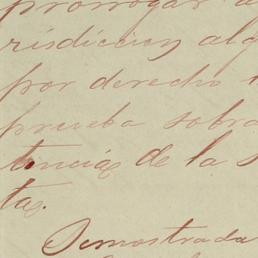 prorrogar
risdiccion alg
por derecho
prueba sobre
tencias de la s
tas.
Demostrada